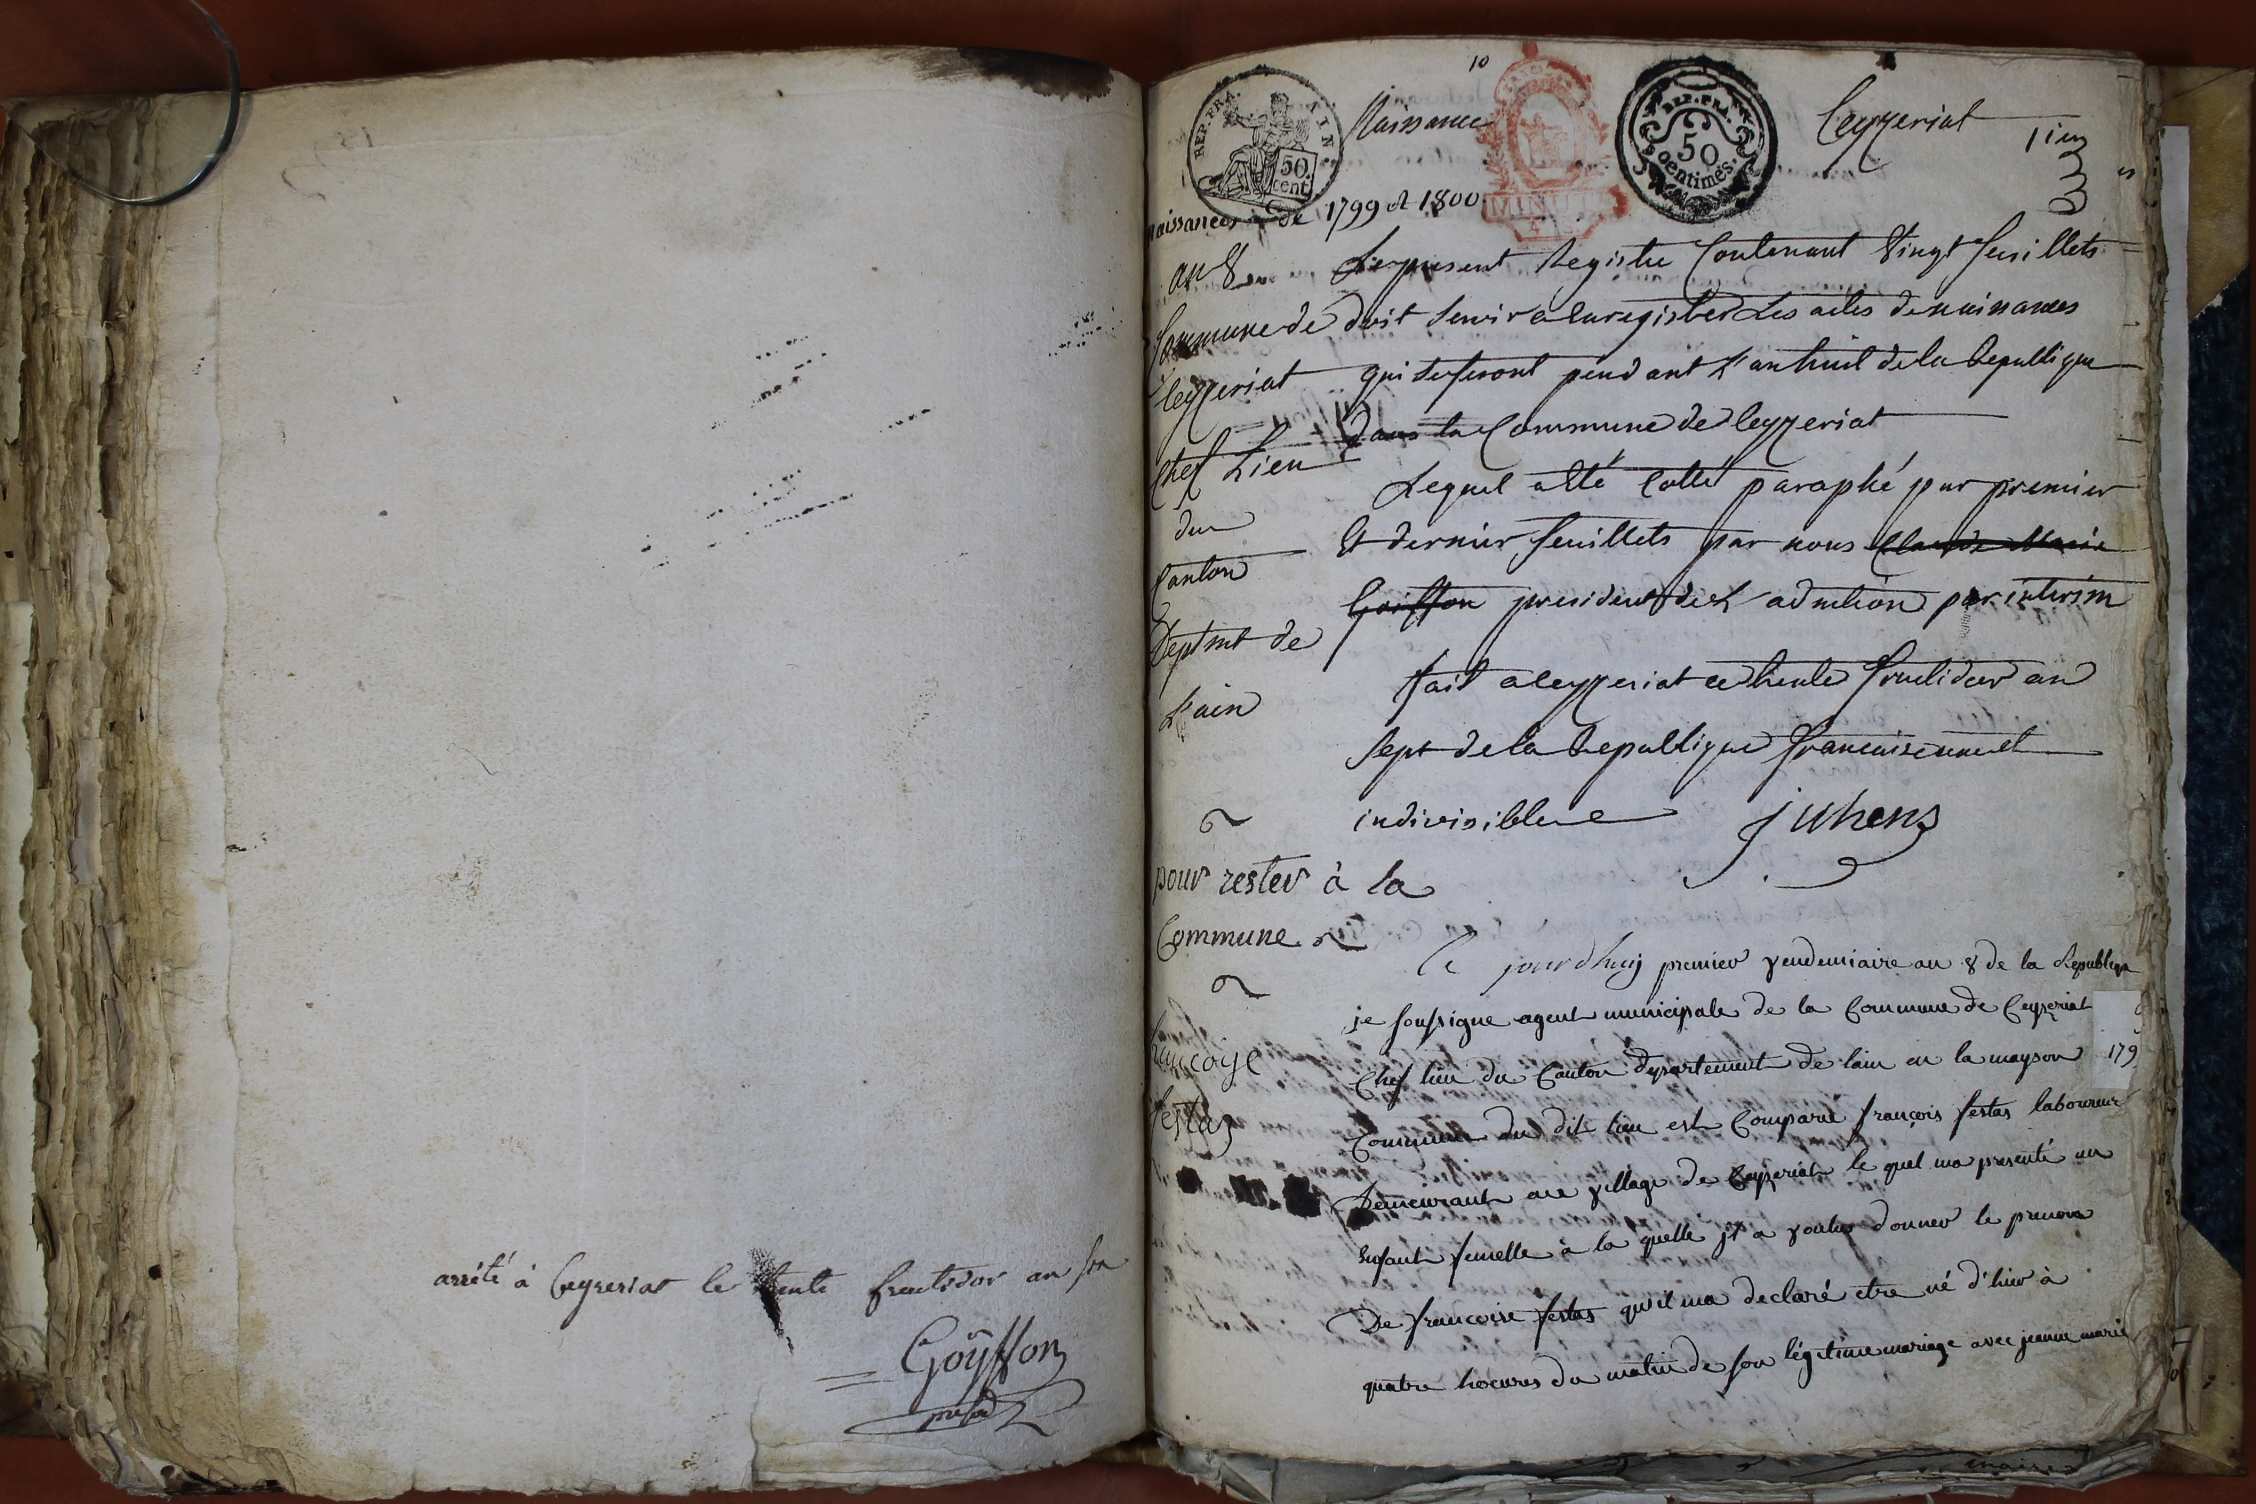 arrêté à Ceyzeriat le trente fructidor an
Goÿffon
présid
10
REP. FRA.
AIN.
50
cent.
Naissance
REP. FRA.
50
centimes.
Ceyzeriat
naissances de 1799 et 1800
an 8
Commune de
Ceyzeriat
Chef Lieu
du
Canton
Deptmt de
L'ain
Le present Registre Contenant Vingt feuillets
doit servir a Enregistrer Les actes de naissances
qui se feront pendant L'an huit de la Republique
dans la Commune de Ceyzeriat
Lequel a Eté Cotté paraphé par premier
Et dernier feuillets par nous Claude Marie
Goiffon president de L'admtion par interim
fait a Ceyzeriat ce trente fructidor an
Sept de la Republique francaise une et
indivisible
juhens
pour rester à la
Commune
françoise
festas
Ce jourdhuy premier vendemiaire an 8 de la Republique
je soussigne agent municipale de la Commune de Ceyzeriat
Chef lieu du Canton departement de lain en la mayson
179
Commune du dit lieu est Comparu françois festas laboureur
Demeurant au village de Ceyzeriat le quel ma presenté un
Enfant femelle à la quelle jl a voulu donner le prenom
De francoise festas qu'il ma declaré etre né d'hier à
quatre heures du matin de son légitime mariage avec jeanne marie